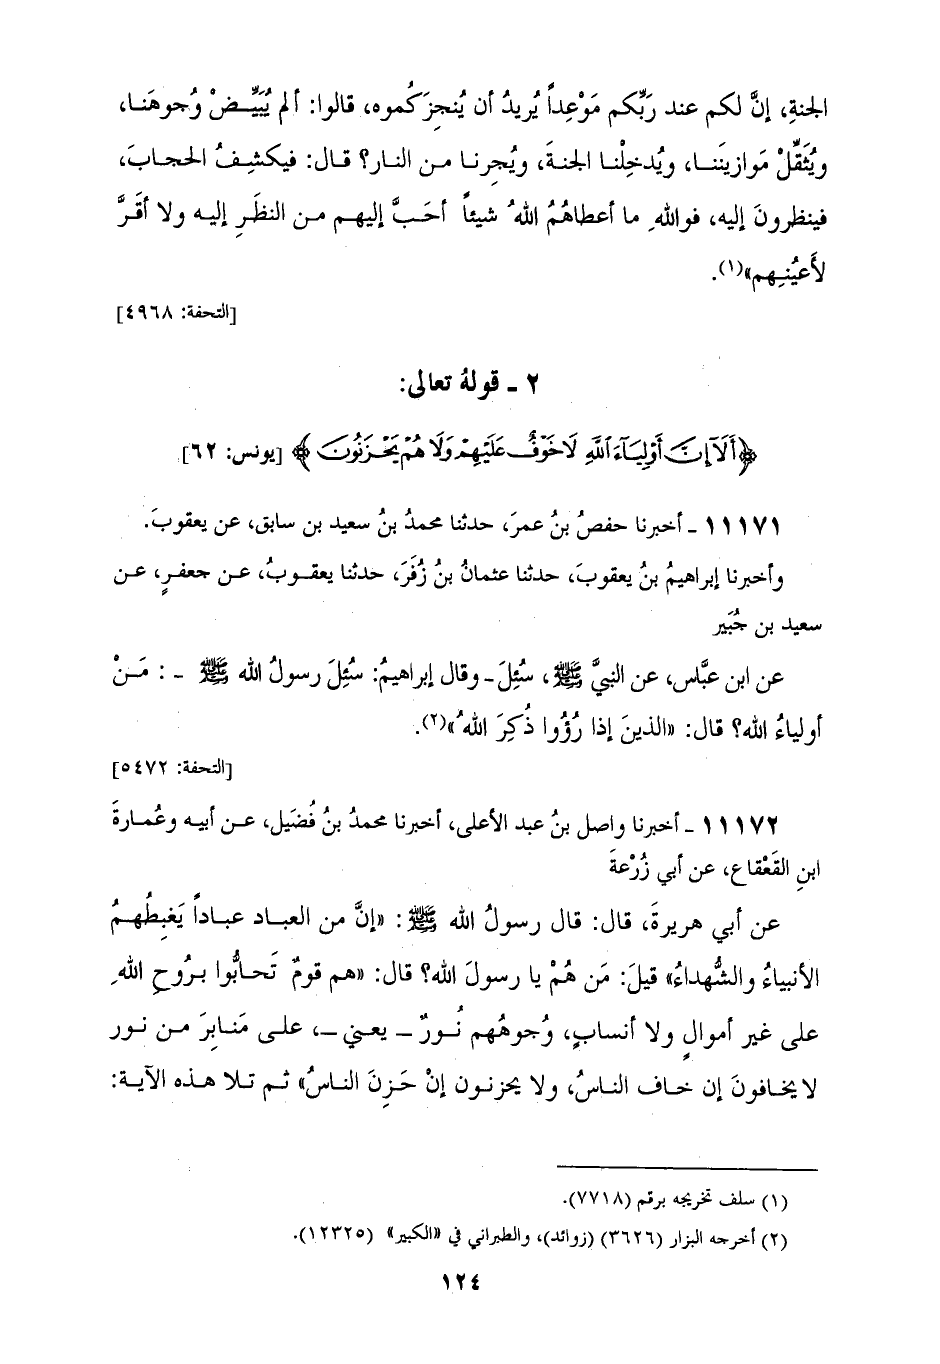 الجنةِ، إنَّ لكم عند رَبِّكم مَوْعِداً يُريدُ أن يُنجِزَكُموه، قالوا: ألم يُبَيِّضْ وُجوهَنا،
ويُثَقِّلْ مَوازينَنا، ويُدخِلْنا الجنةَ، ويُجِرنا من النار؟ قال: فيكشِفُ الحجابَ،
فينظرونَ إليه، فواللهِ ما أعطاهُمُ اللهُ شيئاً أحَبَّ إليهم من النظَرِ إليه ولا أقَرَّ
لأَعيُنِهم»(١).
[التحفة: ٤٩٦٨]
٢ ـ قولهُ تعالى:
﴿أَلَآ إِنَّ أَوْلِيَآءَ ٱللَّهِ لَا خَوْفٌ عَلَيْهِمْ وَلَا هُمْ يَحْزَنُونَ﴾ [يونس: ٦٢]
١١١٧١ ـ أخبرنا حفصُ بنُ عمرَ، حدثنا محمدُ بنُ سعيد بن سابق، عن يعقوبَ.
وأخبرنا إبراهيمُ بنُ يعقوبَ، حدثنا عثمانُ بنُ زُفَرَ، حدثنا يعقوبُ، عن جعفرٍ، عن
سعيد بن جُبَير
عن ابن عبَّاس، عن النبيِّ ﷺ، سُئِلَ ـ وقال إبراهيمُ: سُئِلَ رسولُ الله ﷺ ـ : مَنْ
أولياءُ الله؟ قال: «الذينَ إذا رُؤُوا ذُكِرَ اللهُ»(٢).
[التحفة: ٥٤٧٢]
١١١٧٢ ـ أخبرنا واصل بنُ عبد الأعلى، أخبرنا محمدُ بنُ فُضَيل، عن أبيه وعُمارةَ
ابنِ القَعْقاع، عن أبي زُرْعةَ
عن أبي هريرةَ، قال: قال رسولُ الله ﷺ: «إنَّ من العباد عباداً يَغبِطُهمُ
الأنبياءُ والشُّهداءُ» قيلَ: مَن هُمْ يا رسولَ الله؟ قال: «هم قومٌ تَحابُّوا بروُحِ اللهِ
على غير أموالٍ ولا أنسابٍ، وُجوهُهم نُورٌ ـ يعني ـ، على مَنابرَ من نور
لا يخافونَ إن خاف الناسُ، ولا يحزنون إنْ حَزِنَ الناسُ» ثم تلا هذه الآية:
(١) سلف تخريجه برقم (٧٧١٨).
(٢) أخرجه البزار (٣٦٢٦) (زوائد)، والطبراني في «الكبير» (١٢٣٢٥).
١٢٤